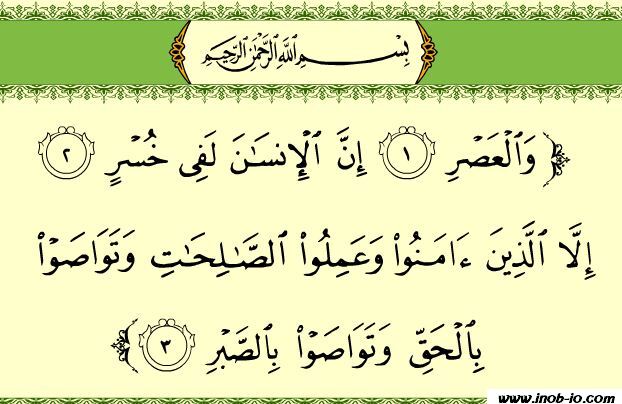 بِسْمِ اللَّهِ الرَّحْمَٰنِ الرَّحِيمِ
﴿ وَٱلْعَصْرِ ١ إِنَّ ٱلْإِنسَٰنَ لَفِى خُسْرٍ ٢
إِلَّا ٱلَّذِينَ ءَامَنُوا۟ وَعَمِلُوا۟ ٱلصَّٰلِحَٰتِ وَتَوَاصَوْا۟
بِٱلْحَقِّ وَتَوَاصَوْا۟ بِٱلصَّبْرِ ٣ ﴾
www.inob-io.com